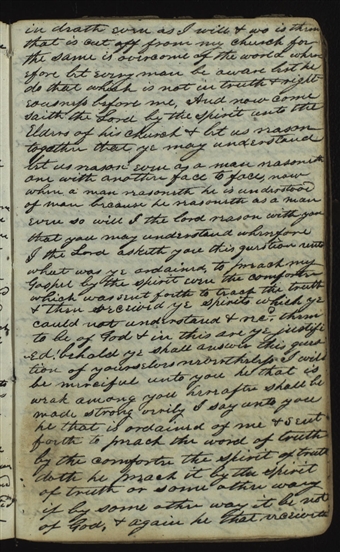 in death even as I will & wo is them
that is cut off from my church for
the same is overcome of the world wher
efore let every man be aware lest he
do that which is not in truth & right
eousness before me, And now come
saith the Lord by the Spirit unto the
Elders of his church & let us reason
together that ye may understand
let us reason even as a man reasoneth
one with another face to face, now
when a man reasoneth he is understood
of man because he reasoneth as a man
even so will I the Lord reason with you
that you may understand wherefore
I the Lord asketh you this question unto
what was ye ordained, to preach my
Gospel by the Spirit even the comforter
which was sent forth to teach the truth
& then received ye spirits which ye
could not understand & rec^d. them
to be of God & in this are ye justifi
ed, behold ye shall answer this ques
tion of yourselves nevertheless I will
be merciful unto you he that is
weak among you hereafter shall be
made strong verily I say unto you
he that is ordained of me & sent
forth to preach the word of truth
by the comforter the spirit of truth
doth he preach it by the spirit
of truth or some other way
if by some other way it be not
of God, & again he that receiveth